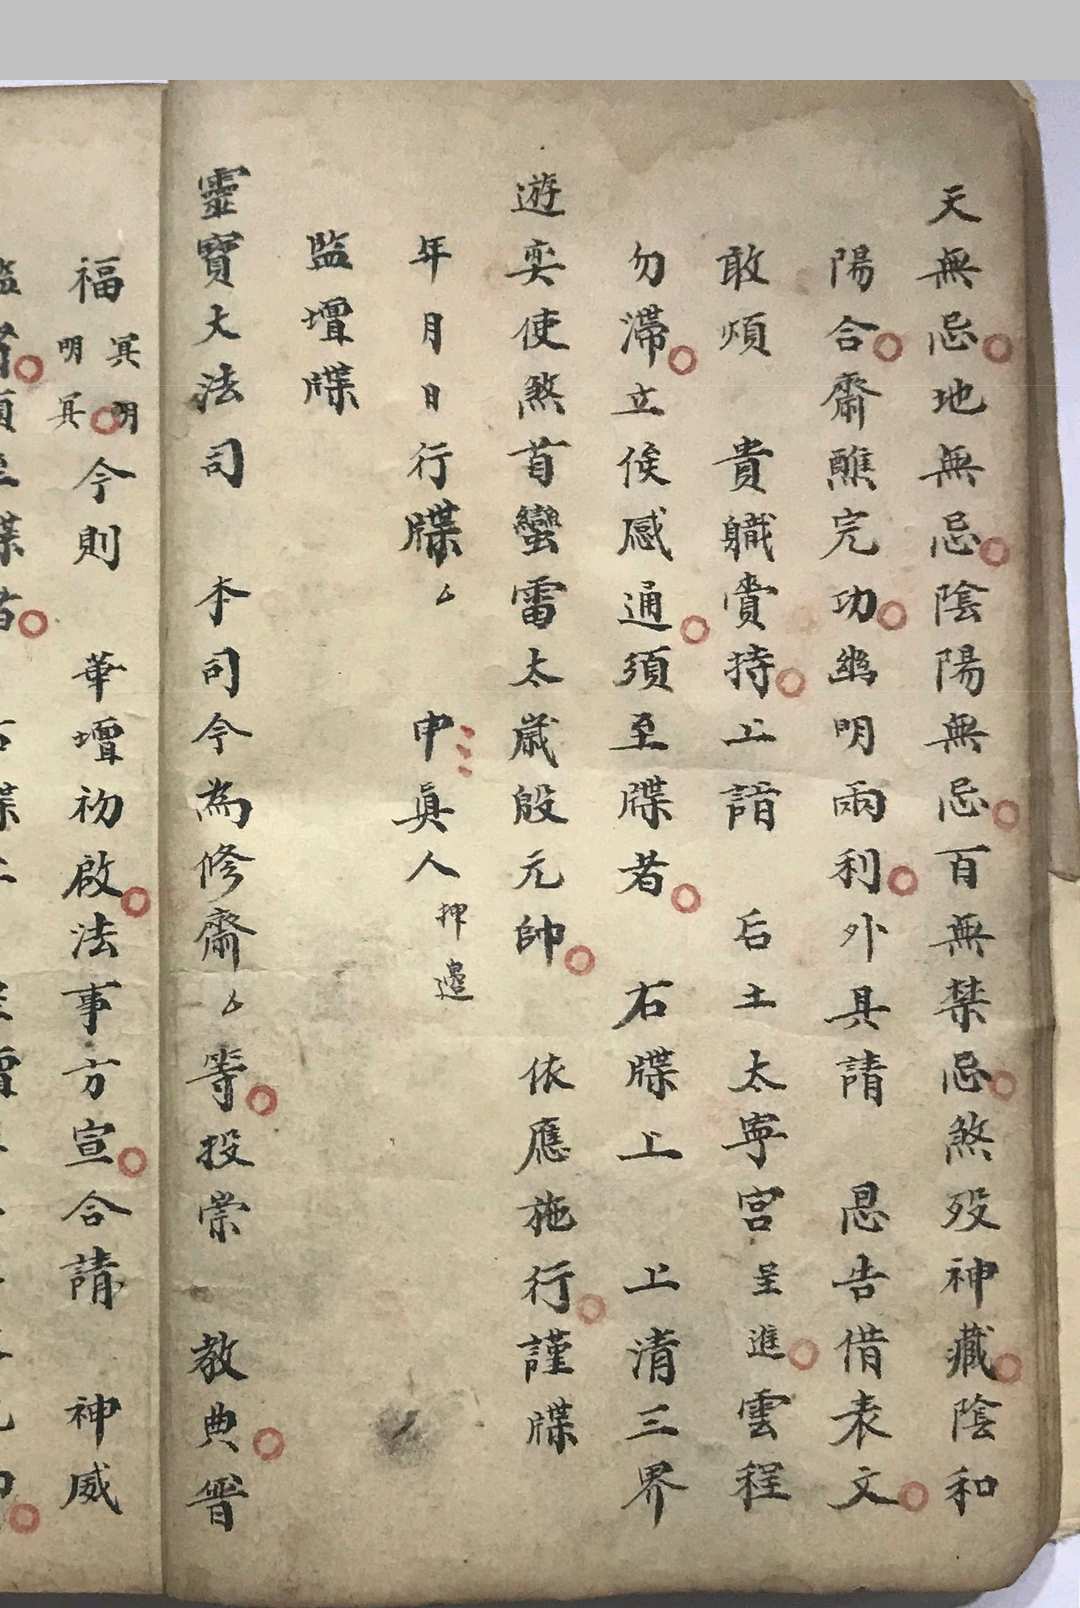 天無忌地無忌陰陽無忌百無禁忌煞歿神藏陰和
陽合齋醮完功幽明兩利外具請 恩告借表文
敢煩 貴職賫持上詣 后土太寜宮呈進雲程
勿滯立俟感通須至牒者 右牒上 上清三界
遊奕使煞首蠻雷太歲殷元帥 依應施行謹牒
年月日行牒厶 申眞人押邉
監壇牒
靈寶大法司 本司今為修齋厶等投崇 教典晉
福冥明明冥今則 華壇初啟法事方宣合請 神威